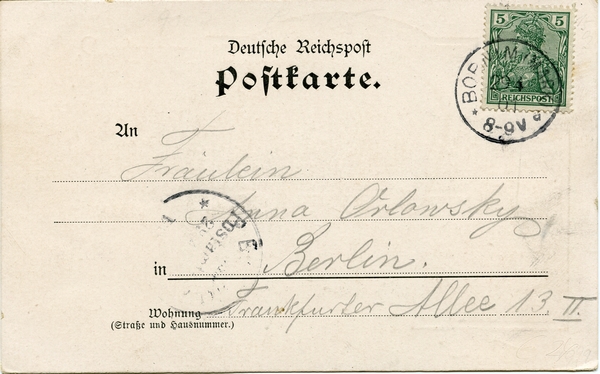 Deutsche Reichspost
Postkarte.
5 5
REICHSPOST
8-9V
An
Fräulein
Anna Orlowsky
in Berlin.
Wohnung Frankfurter Allee 13 II.
(Straße und Hausnummer.)